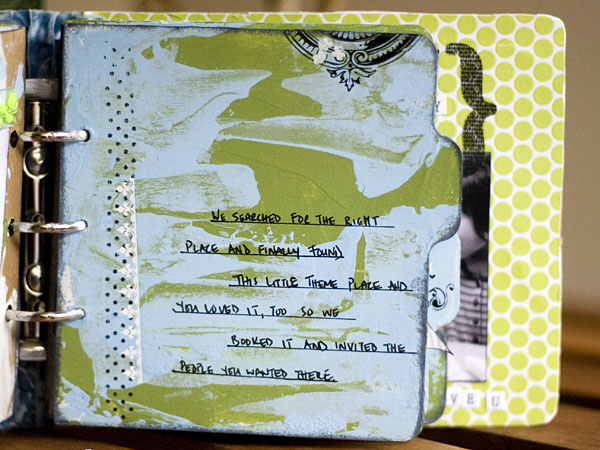 WE SEARCHED FOR THE RIGHT
PLACE AND FINALLY FOUND
THIS LITTLE THEME PLACE AND
YOU LOVED IT, TOO SO WE
BOOKED IT AND INVITED THE
PEOPLE YOU WANTED THERE.
Y
V E U